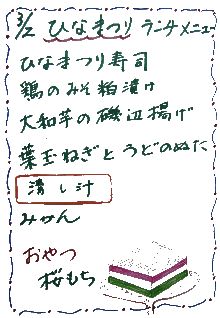 3/2 ひなまつり ランチメニュー
ひなまつり寿司
鶏のみそ粕漬け
大和芋の磯辺揚げ
葉玉ねぎとうどのぬた
清し汁
みかん
おやつ
桜もち